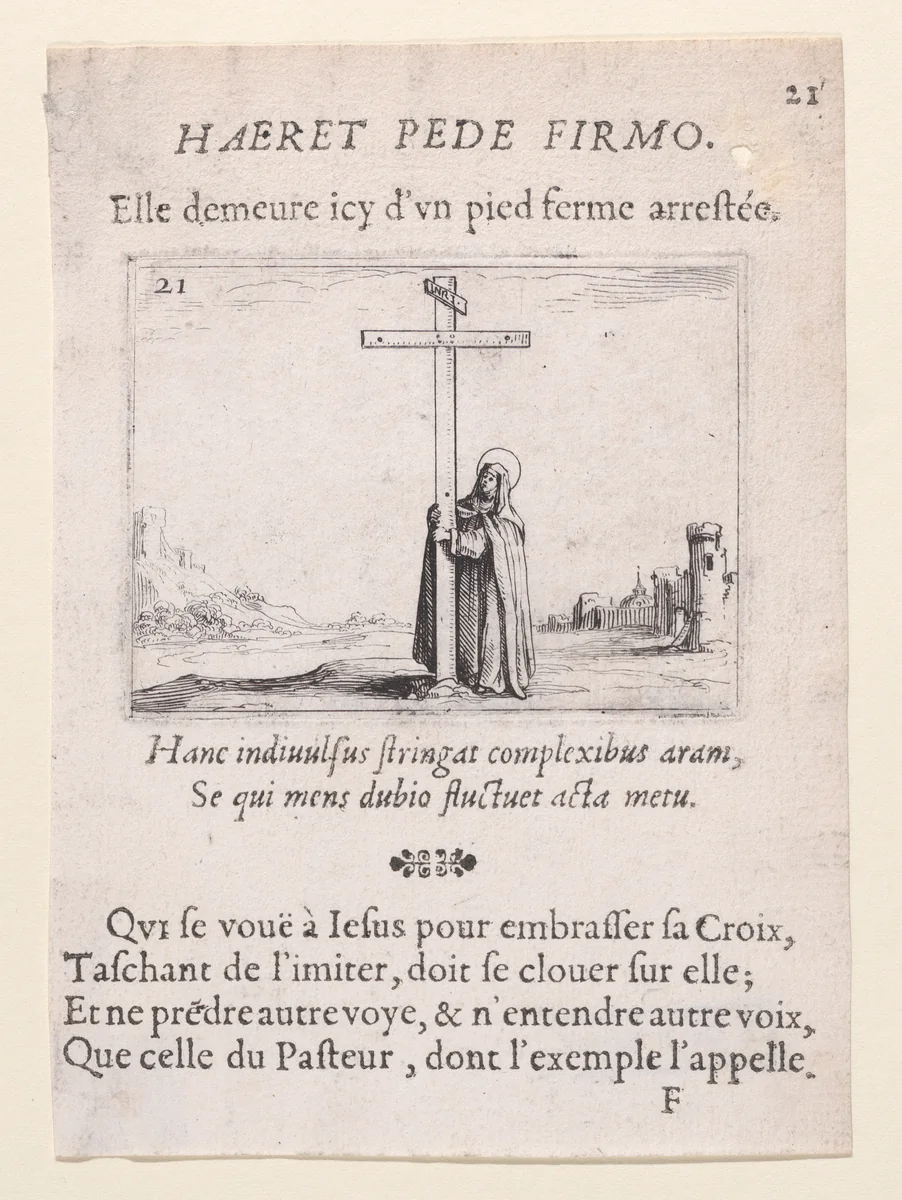 21
HAERET PEDE FIRMO.
Elle demeure icy d'vn pied ferme arreſtée.
21
INRI
Hanc indiuulſus ſtringat complexibus aram,
Se qui mens dubio fluctuet acta metu.
QVI ſe vouë à Ieſus pour embraſſer ſa Croix,
Taſchant de l'imiter, doit ſe clouer ſur elle;
Et ne prẽdre autre voye, & n'entendre autre voix,
Que celle du Paſteur, dont l'exemple l'appelle.
F